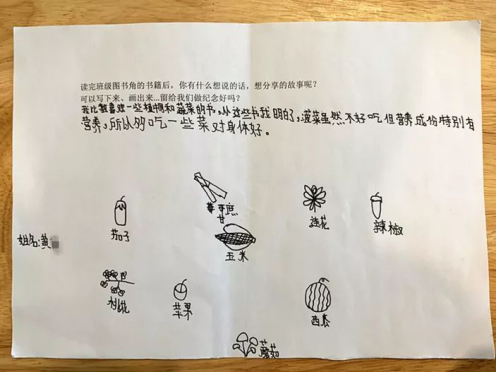 读完班级图书角的书籍后，你有什么想说的话，想分享的故事呢？
可以写下来、画出来...留给我们做纪念好吗？
我比较喜欢一些植物和蔬菜的书，从这些书我明白，蔬菜虽然不好吃但营养成份特别有
营养，所以多吃一些菜对身体好。
甘蔗
茄子
莲花
辣椒
姓名:黄
玉米
桃花
苹果
西瓜
蘑菇